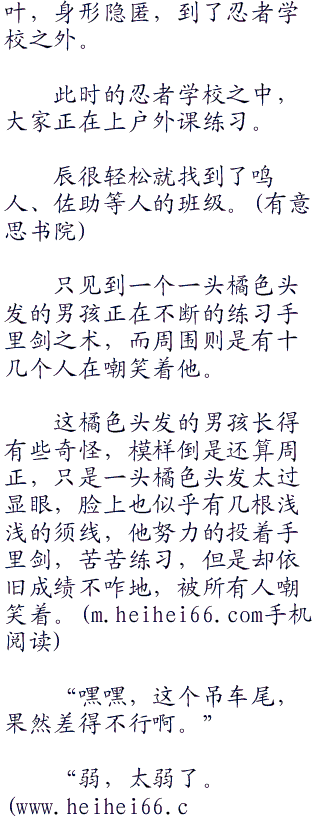 叶，身形隐匿，到了忍者学
校之外。
此时的忍者学校之中，
大家正在上户外课练习。
辰很轻松就找到了鸣
人、佐助等人的班级。(有意
思书院)
只见到一个一头橘色头
发的男孩正在不断的练习手
里剑之术，而周围则是有十
几个人在嘲笑着他。
这橘色头发的男孩长得
有些奇怪，模样倒是还算周
正，只是一头橘色头发太过
显眼，脸上也似乎有几根浅
浅的须线，他努力的投着手
里剑，苦苦练习，但是却依
旧成绩不咋地，被所有人嘲
笑着。(m.heihei66.com手机
阅读)
“嘿嘿，这个吊车尾，
果然差得不行啊。”
“弱，太弱了。
(www.heihei66.c